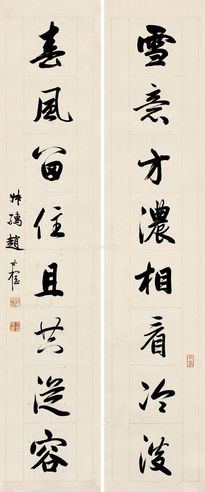 雪意方濃相看冷淡
春風留住且共從容
叔孺趙時棡